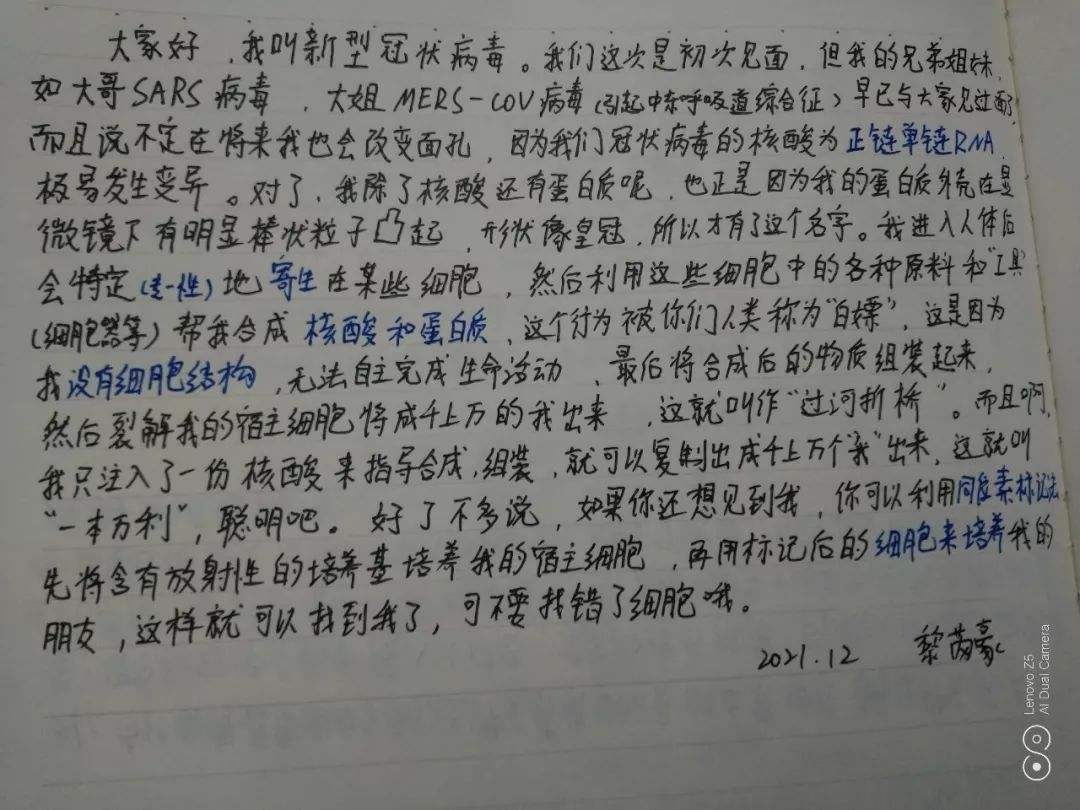 大家好，我叫新型冠状病毒。我们这次是初次见面，但我的兄弟姐妹，
如大哥SARS病毒，大姐MERS-COV病毒（引起中东呼吸道综合征）早已与大家见过面，
而且说不定在将来我也会改变面孔，因为我们冠状病毒的核酸为正链单链RNA，
极易发生变异。对了，我除了核酸还有蛋白质呢，也正是因为我的蛋白质外壳在显
微镜下有明显棒状粒子凸起，形状像皇冠，所以才有了这个名字。我进入人体后
会特定（专一性）地寄生在某些细胞，然后利用这些细胞中的各种原料和“工具”
（细胞器等）帮我合成核酸和蛋白质，这个行为被你们人类称为“白嫖”，这是因为
我没有细胞结构，无法自主完成生命活动，最后将合成后的物质组装起来，
然后裂解我的宿主细胞将成千上万的我出来，这就叫作“过河拆桥”。而且啊，
我只注入了一份核酸来指导合成，组装，就可以复制出成千上万个“我”出来，这就叫
“一本万利”，聪明吧。好了不多说，如果你还想见到我，你可以利用同位素标记法
先将含有放射性的培养基培养我的宿主细胞，再用标记后的细胞来培养我的
朋友，这样就可以找到我了，可不要找错了细胞哦。
2021.12 黎
Lenovo Z5
AI Dual Camera